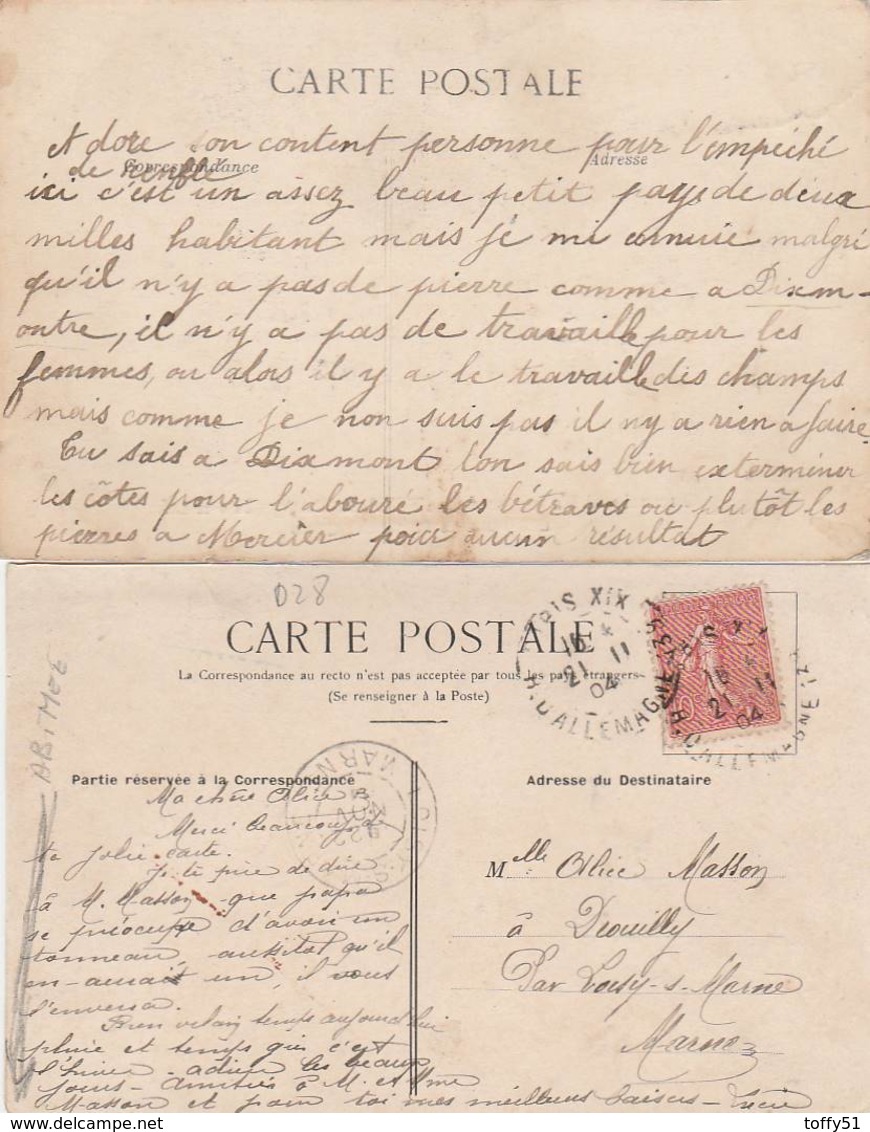 CARTE POSTALE
Correspondance
Adresse
A dore son content personne pour l'empeché
de ronflé
ici c'est un assez beau petit pays de deux
milles habitant mais je mi ennuie malgré
qu'il n'y a pas de pierre comme a Dixm-
ontre, il n'y a pas de travaille pour les
femmes, ou alors il y a le travaille des champs
mais comme je non suis pas il n'y a rien a faire
Tu sais a Dixmont l'on sais bien exterminer
les côtes pour l'abouré les bétraves ou plutôt les
pierres a Mercier poir aucun résultat
D28
CARTE POSTALE
La Correspondance au recto n'est pas acceptée par tous les pays étrangers
(Se renseigner à la Poste)
PARIS XIX
16
21 11
04
R. D'ALLEMAGNE
PARIS XIX
16
21 11
04
R. D'ALLEMAGNE
MARNE
AB. MOE
Partie réservée à la Correspondance
Adresse du Destinataire
Ma chère Alice
Merci beaucoup de
ta jolie carte.
Je te prie de dire
à M. Masson que papa
se préocupe d'avoir un
tonneau, aussitôt qu'il
en aurait un, il vous
l'enverra.
Bien vilain temps aujourd'hui
pluie et temps gris c'est
l'hiver - adieu les beaux
jours - amitiés à M. et Mme
Masson et pour toi mes meilleurs baisers - Lucie
Mlle Alice Masson
à Drouilly
Par Loisy-s-Marne
Marne
toffy51